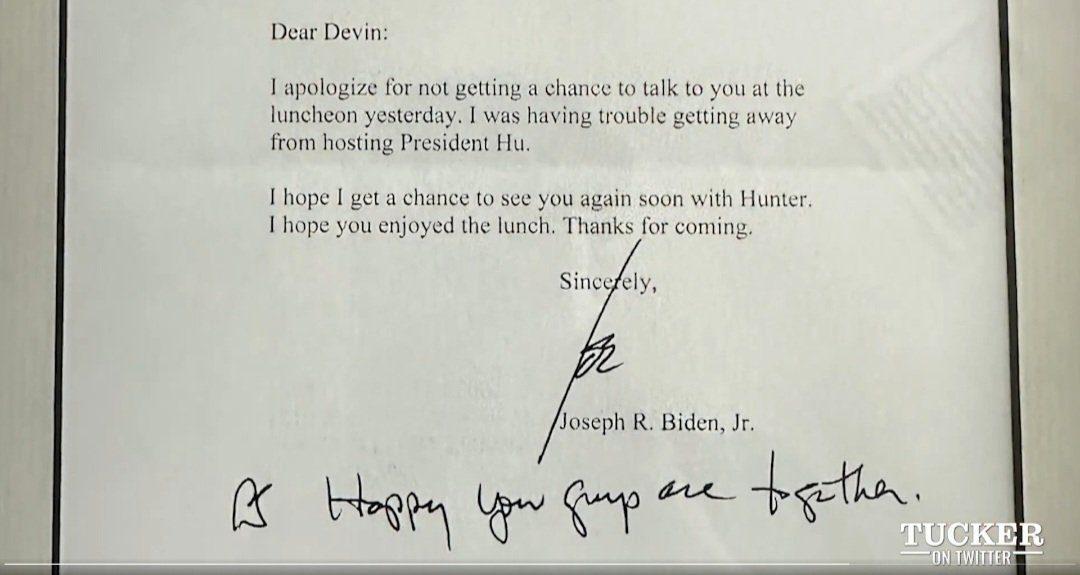 Dear Devin:
I apologize for not getting a chance to talk to you at the
luncheon yesterday. I was having trouble getting away
from hosting President Hu.
I hope I get a chance to see you again soon with Hunter.
I hope you enjoyed the lunch. Thanks for coming.
Sincerely,
Joseph R. Biden, Jr.
PS Happy you guys are together.
TUCKER
ON TWITTER